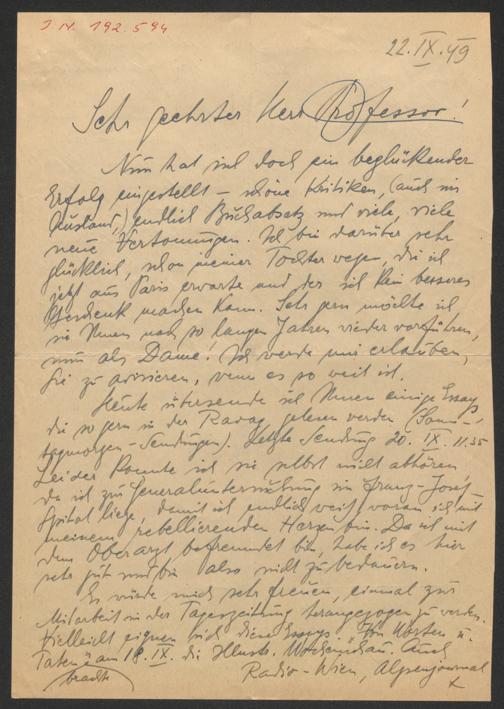 J.N. 192.594
22.IX.49
Sehr geehrter Herr Professor!
Nun hat sich doch ein beglückender
Erfolg eingestellt – schöne Kritiken, (auch im
Ausland,) endlich Buchabsatz und viele, viele
neue Vertonungen. Ich bin darüber sehr
glücklich, schon meiner Tochter wegen, die ich
jetzt aus Paris erwarte und der ich kein besseres
Geschenk machen kann. Sehr gern möchte ich
sie Ihnen nach so langen Jahren wieder vorführen,
nun als Dame! Ich werde mir erlauben,
Sie zu avisieren, wenn es so weit ist.
Heute übersende ich Ihnen einige Essays
die so gern in der Ravag gelesen werden (Sonn-
tagmorgen-Sendungen). Letzte Sendung 20. IX. 11.35
Leider konnte ich sie selbst nicht abhören
da ich zur Generaluntersuchung im Franz-Josef-
Spital liege, damit ich endlich weiß, woran ich mit
meinem rebellierenden Herzen bin. Da ich mit
dem Oberarzt befreundet bin, habe ich es hier
sehr gut und bin also nicht zu bedauern.
Es würde mich sehr freuen, einmal zur
Mitarbeit in der Tageszeitung herangezogen zu werden.
Vielleicht eignen sich diese Essays. "Von Worten u.
Taten" am 18. IX. die Illustr. Wochenschau. Auch
brachte Radio-Wien, Alpenjournal
x